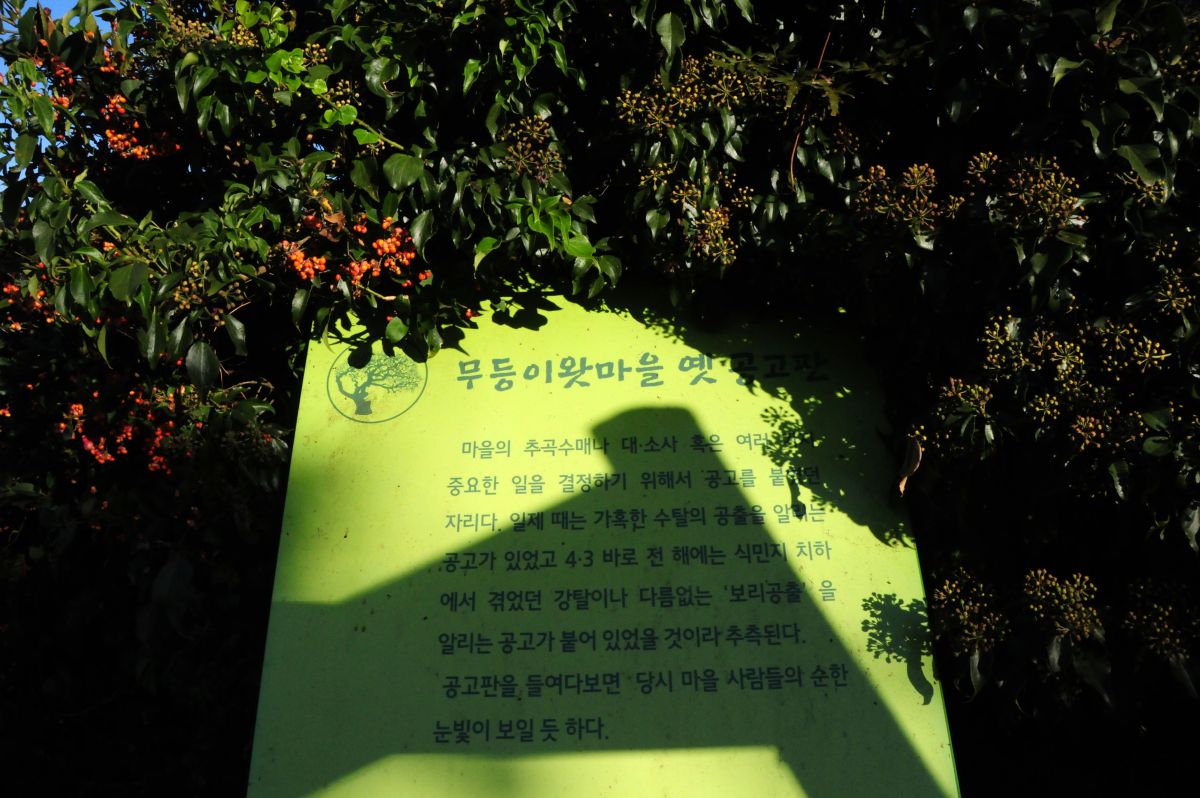 무등이왓마을 옛 공고판
마을의 추곡수매나 대·소사 혹은 여러
중요한 일을 결정하기 위해서 공고를 붙이던
자리다. 일제 때는 가혹한 수탈의 공출을 알리는
공고가 있었고 4·3 바로 전 해에는 식민지 치하
에서 겪었던 강탈이나 다름없는 '보리공출' 을
알리는 공고가 붙어 있었을 것이라 추측된다.
공고판을 들여다보면 당시 마을 사람들의 순한
눈빛이 보일 듯 하다.